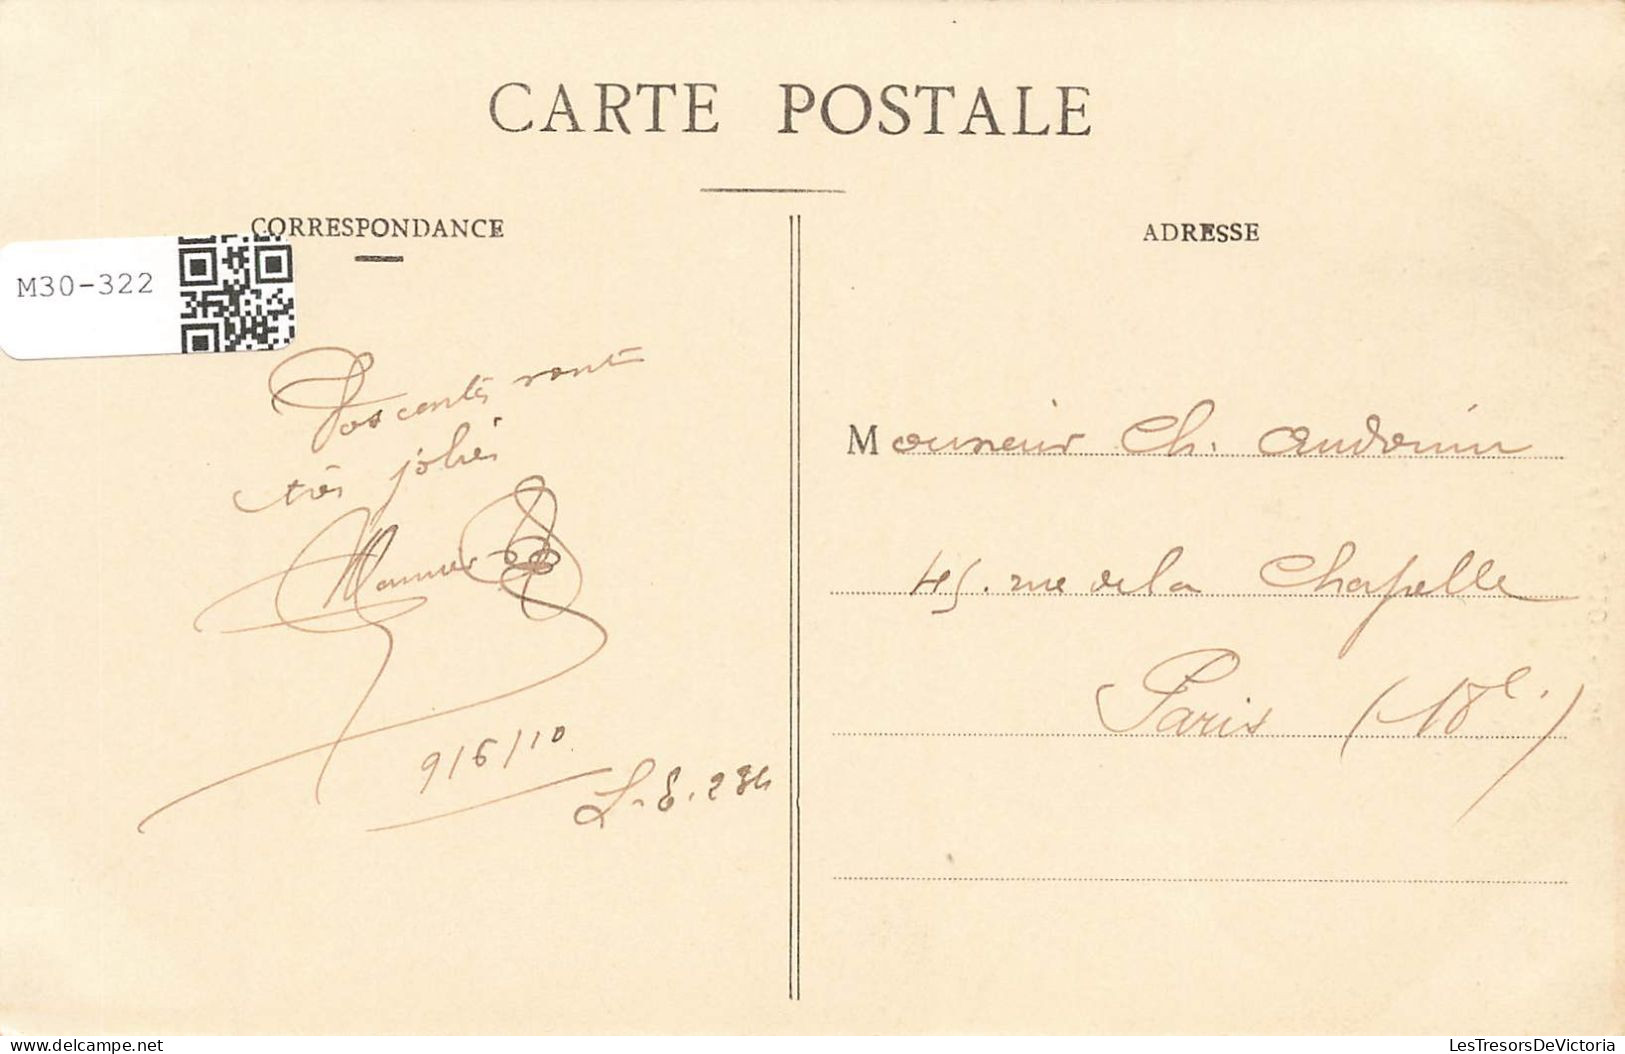 CARTE POSTALE
CORRESPONDANCE
ADRESSE
M30-322
Vos cartes sont
très jolies
9/6/10
L.E. 234
Monsieur Ch. Audouin
45. rue de la Chapelle
Paris (18e.)
LesTresorsDeVictoria
delcampe.net